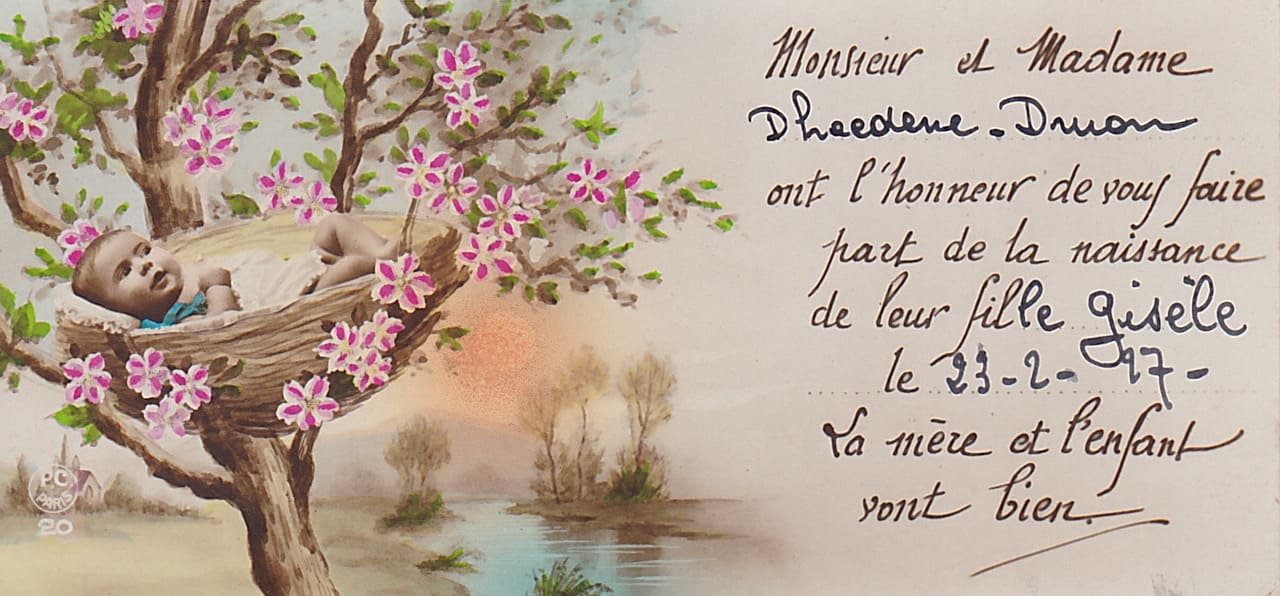 Monsieur et Madame
Dhaedene - Druon
ont l'honneur de vous faire
part de la naissance
de leur fille gisèle
le 23-2-47-
La mère et l'enfant
vont bien
PC
PARIS
20